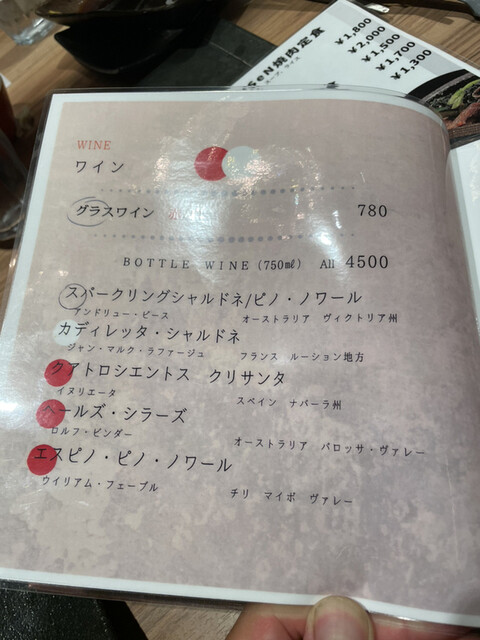 SeN焼肉定食
¥1,800
¥2,000
¥1,500
¥1,700
¥1,300
WINE
ワイン
グラスワイン 780
BOTTLE WINE (750㎖) All 4500
スパークリングシャルドネ/ピノ・ノワール
アンドリュー・ピース オーストラリア ヴィクトリア州
カディレッタ・シャルドネ
ジャン・マルク・ラファージュ フランス ルーション地方
クアトロシエントス クリサンタ
イヌリエータ スペイン ナバーラ州
ヘールズ・シラーズ
ロルフ・ビンダー オーストラリア バロッサ・ヴァレー
エスピノ・ピノ・ノワール
ウイリアム・フェーブル チリ マイポ ヴァレー